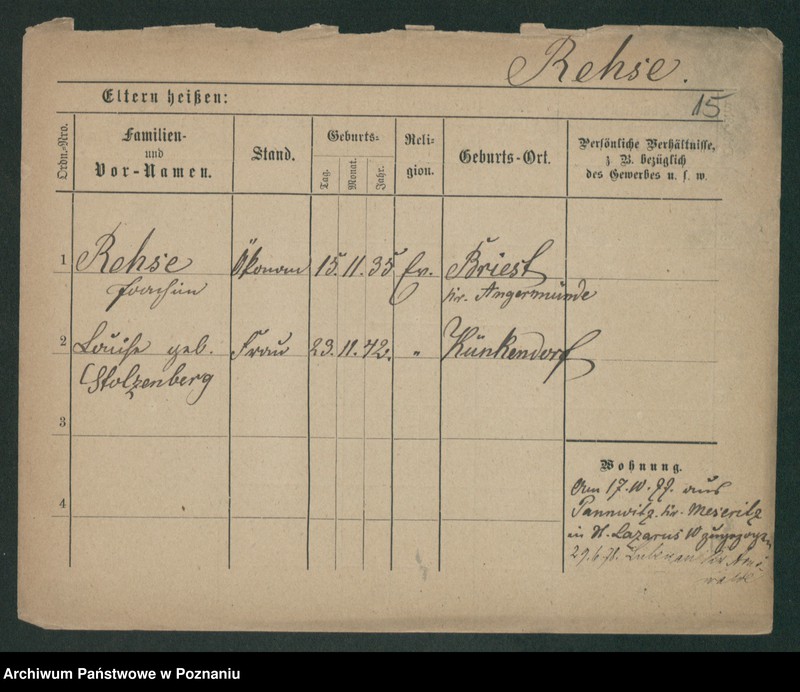 Rehse.
15
Eltern heißen:
Ordn.-Nro.
Familien-
und
Vor-Namen.
Stand.
Geburts-
Tag.
Monat.
Jahr.
Reli-
gion.
Geburts-Ort.
Persönliche Verhältnisse,
z. B. bezüglich
des Gewerbes u. s. w.
1 Rehse Ökonom 15. 11. 35 Ev. Briest
Joachim Kr. Angermünde
2 Louise geb. Frau 23. 11. 42. " Künkendorf
Stolzenberg
3
4
Wohnung.
Am 17. 10. 77. aus
Pannwitz Kr. Meseritz
in St. Lazarus 10 zugezogen
29.6.78.
Archiwum Państwowe w Poznaniu